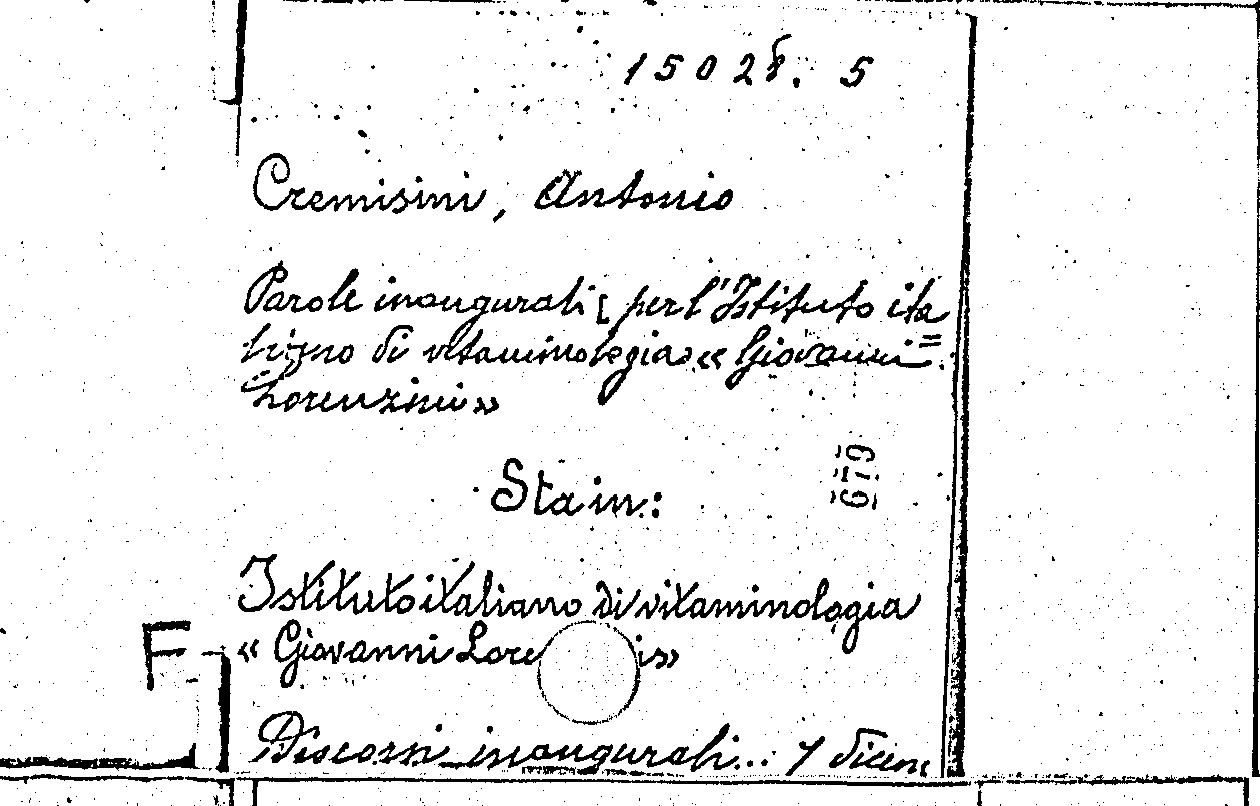 15028. 5
Cremisini, Antonio
Parole inaugurali [per l'Istituto ita
liano di vitaminologia «Giovanni=
Lorenzini»
Sta in:
679
Istituto italiano di vitaminologia
« Giovanni Lore is»
F
Discorsi inaugurali... 7 dicem